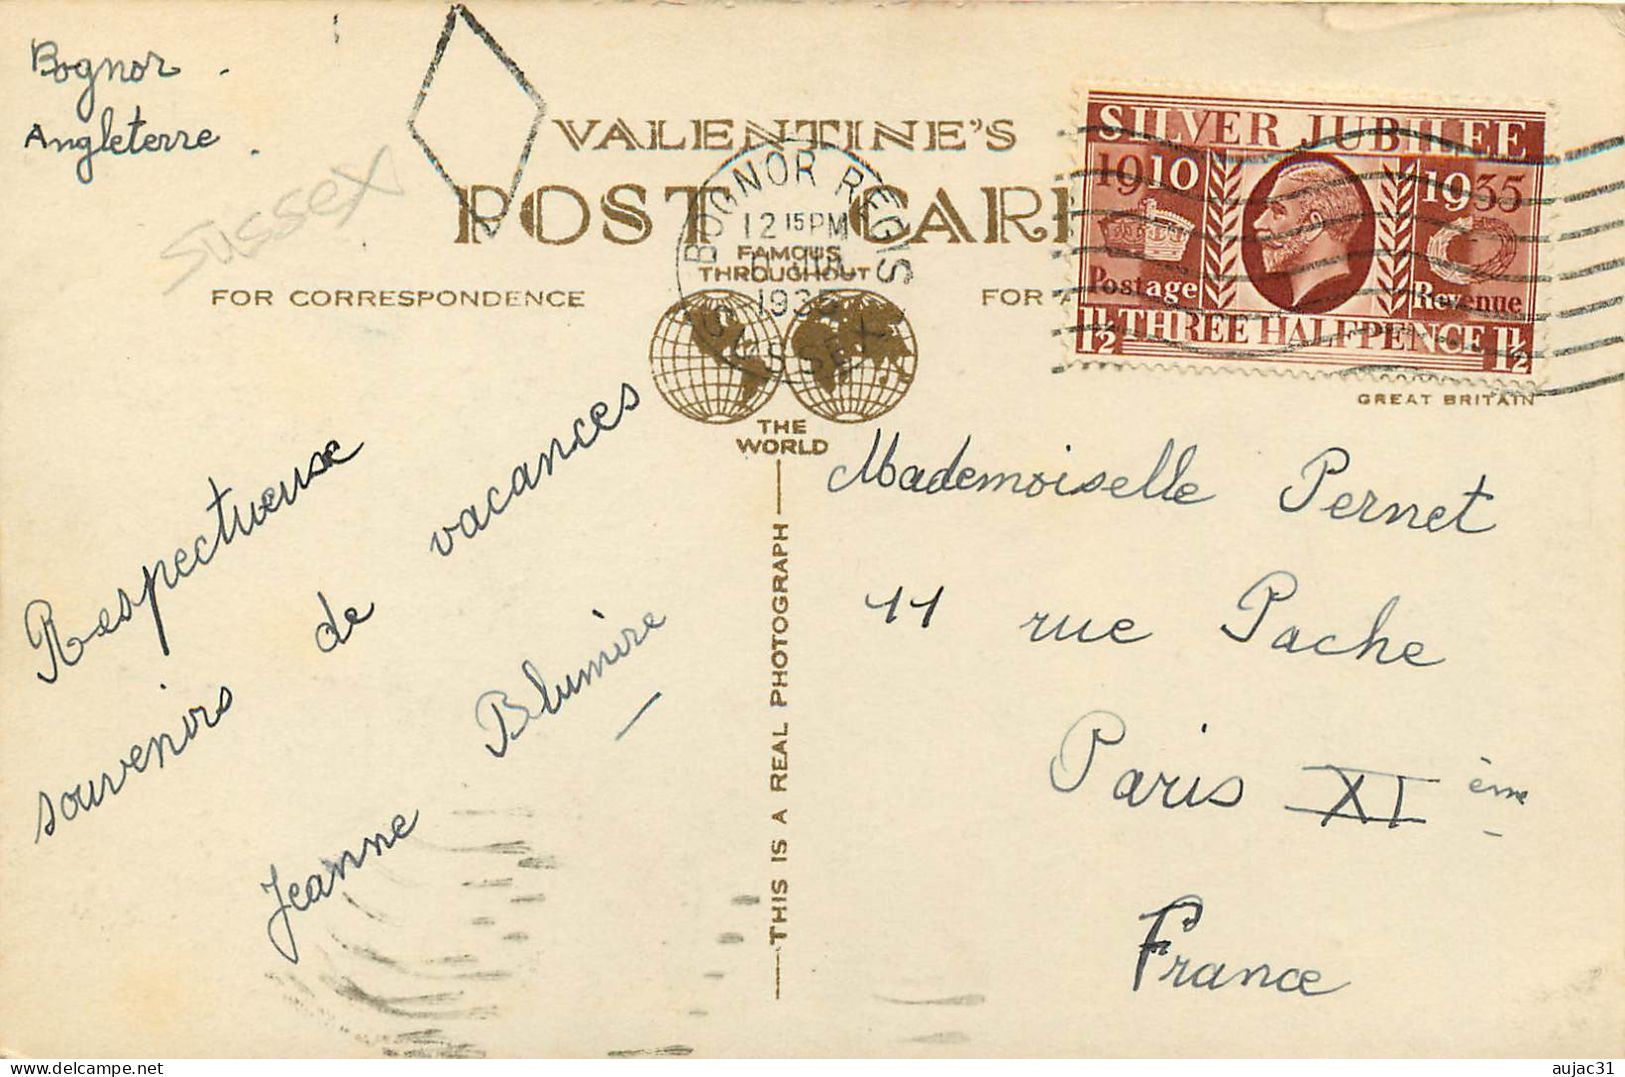 Bognor.
Angleterre.
SUSSEX
VALENTINE'S
POST CAR
FAMOUS
THROUGHOUT
THE
WORLD
FOR CORRESPONDENCE
FOR
BOGNOR REGIS
12 15 PM
1935
SUSSEX
SILVER JUBILEE
1910 1935
Postage Revenue
1½ THREE HALFPENCE 1½
GREAT BRITAIN
THIS IS A REAL PHOTOGRAPH
Respectueuse
souvenirs de vacances
Jeanne Blumière
Mademoiselle Pernet
11 rue Pache
Paris XI ème
France
delcampe.net
aujac31